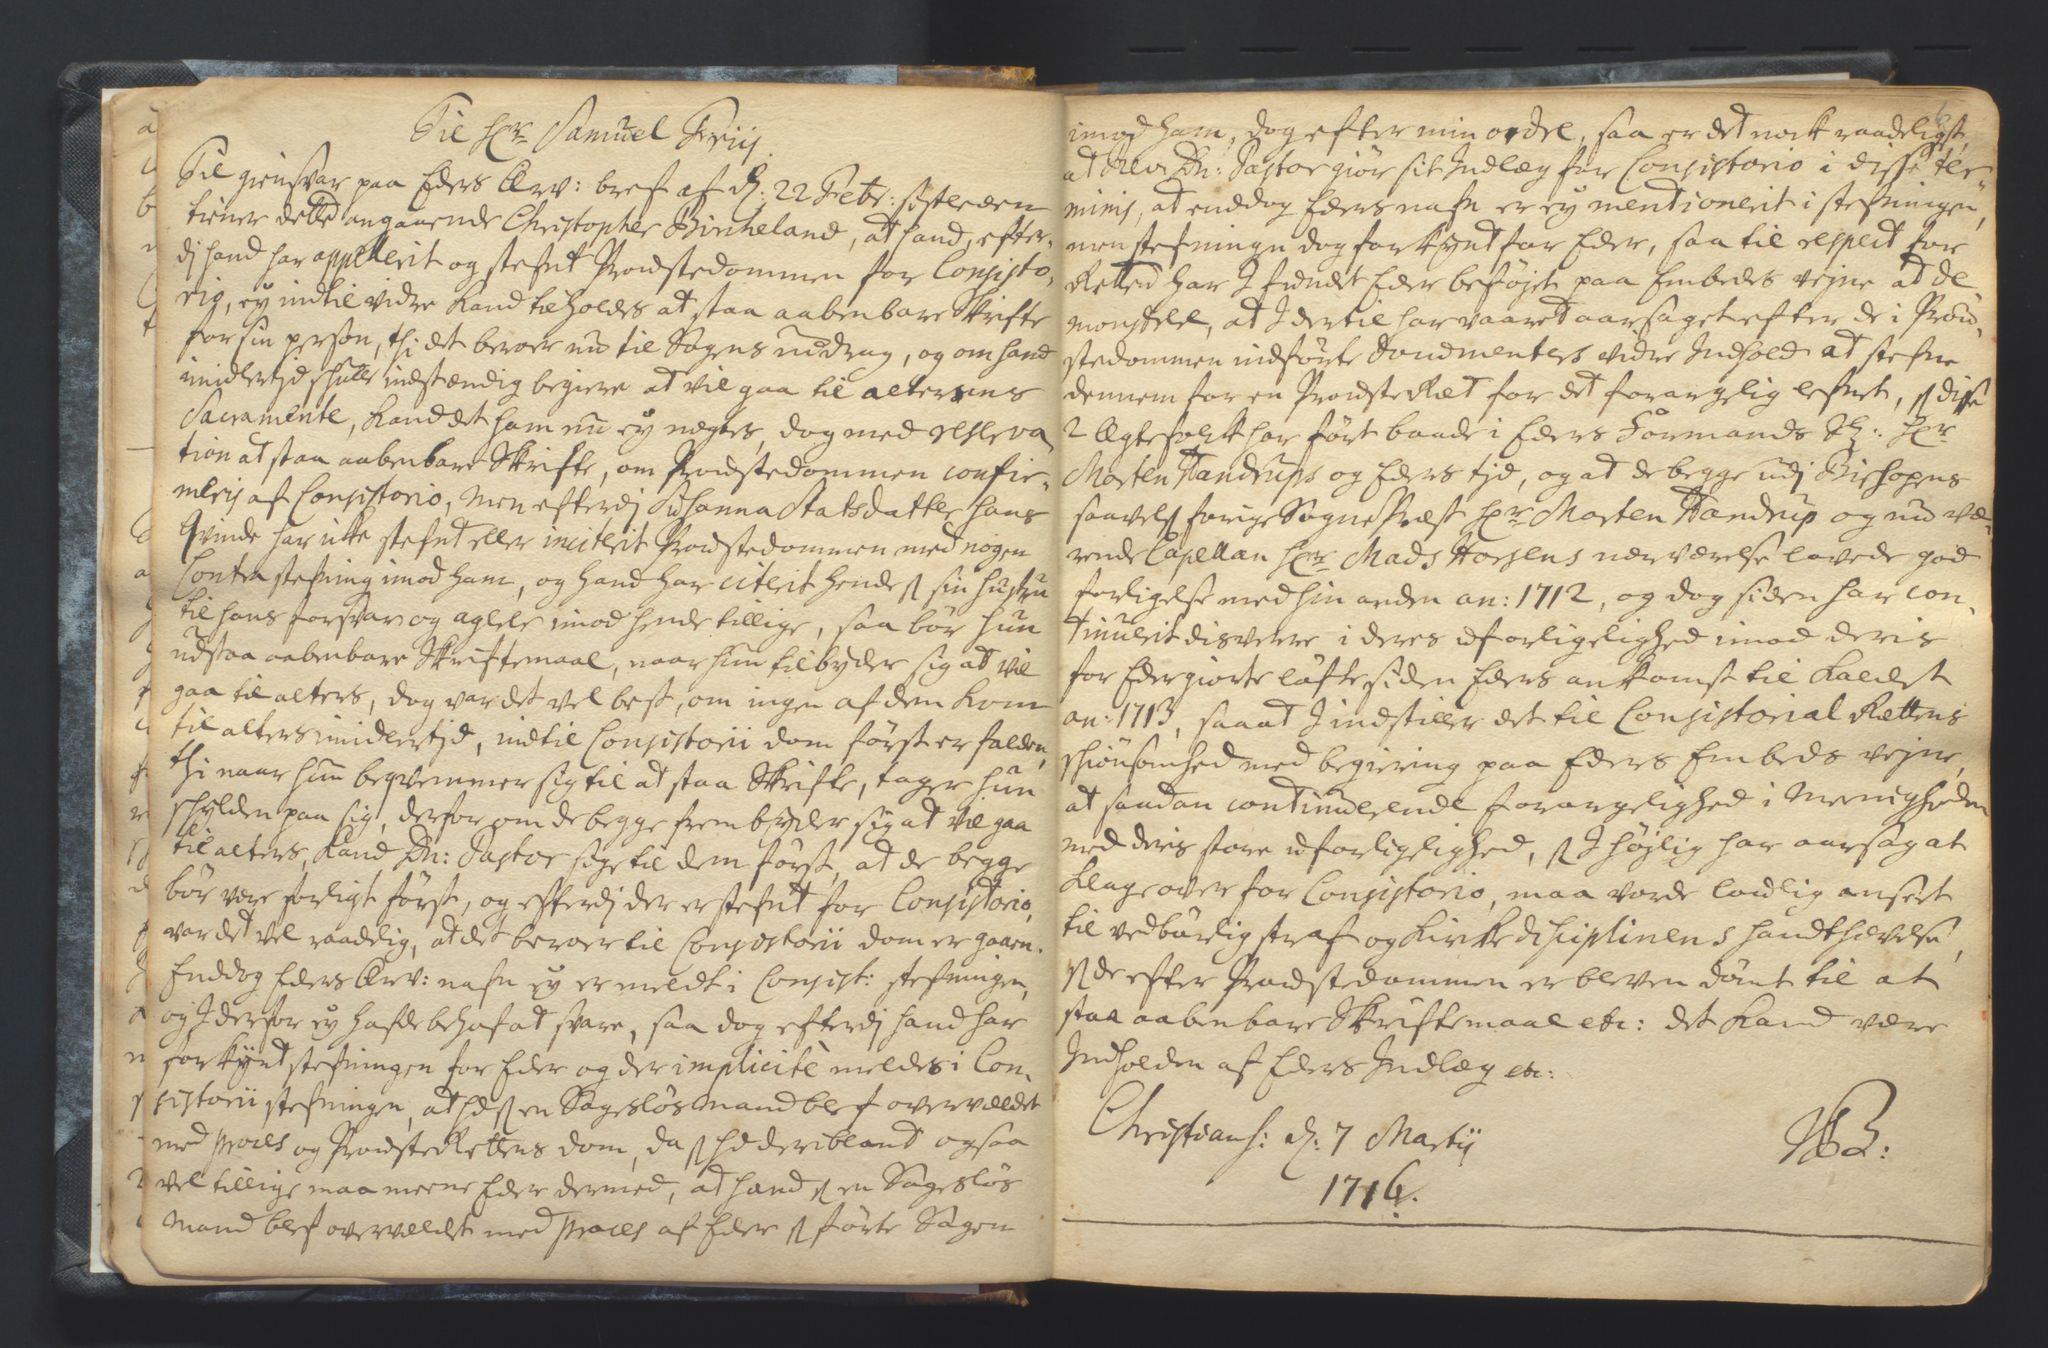 Til Hr Samuel Friis.
Til giensvar paa Eders Ærv: bref af d: 22 Febr: sistleden
tiener dette angaaende Christopher Bircheland, at hand, efter-
dj hand har appellerit og stefnt Provstedommen for Consisto-
rio, ey indtil vidre kand tilholdes at staa aabenbare Skrifte
for sin person, thj det beroer nu til Sagens uddrag, og om hand
imidlertjd skulle indstændig begiere at vil gaa til alterens
Sacramente, kand det ham nu ey negtes, dog med reserva-
tion at staa aabenbare Skrifte, om Provstedommen confir-
meris af Consistorio, Men efterdj Susanna Matsdatter hans
Qvinde har icke stefnt eller inciterit Provstedommen med nogen
Contra stefning imod ham, og hand har citerit hende sin hustru
til hans forsvar og agere imod hende tillige, saa bør hun
udstaa aabenbare Skriftemaal, naar hun tilbyder sig at vil
gaa til alters, dog var det vel best, om ingen af dem kom
til alters imidlertjd, indtil Consistorii dom først er falden,
thi naar hun beqvemmer sig til at staa Skrifte, tager hun
skylden paa sig, derfor om de begge frembyder sig at vil gaa
til alters, kand Dn: Pastor sige til dem først, at de begge
bør være forligt først, og efterdj der er stefnt for Consistorio,
var det vel raadelig, at det beroer til Consistorii dom er gaaen.
Enddog Eders Ærv: nafn ey er meldt i Consist: stefningen,
og I derfor ey hafde behof at svare, saa dog efterdj hand har
forkyndt stefningen for Eder og der implicitè meldes i Con-
sistorii stefningen, at hand en Sagesløs mand blef overvældet
med proces og Provste Rettens dom, da deriblandt ogsaa
vel tillige maa meene Eder dermed, at hand en Sagesløs
Mand blef overvældet med proces af Eder førte Sagen
imod ham, dog efter min ordre, saa er det nock raadeligst,
at Rev: Dn: Pastor giør sit Indlæg for Consistorio i disse ter-
minis, at enddog Eders nafn er ey mentionerit i stefningen,
men stefningen dog forkyndt for Eder, saa til respect for
Retten har I fundet Eder beføjet paa Embedes vejne at de
monstrere, at I dertil har vaaret aarsaget efter de i Prov-
stedommen indførte documenters vidre Indhold at stefne
dennem for en Provste Ret for det forargelig lefnet, disse
2 Ægtefolck har ført baade i Eders Formands Sl: Hr
Morten Tandrups og Eders tjd, og at de begge udj Bishopens
saavel forige Sogne Præst Hr Morten Tandrup og nu væ-
rende Capellan Hr Mads Hoesens nærværelse lovede god
forligelse med hin anden an: 1712, og dog siden har con-
tinuerit disverre i deres uforligelighed imod deris
for Eder giorte løfte siden Eders ankomst til kaldet
an: 1713, saa at I indstiller det til Consistorial Rettens
skiønsomhed med begiering paa Eders Embeds vejne,
at saadan continuerende forargelighed i Meenigheden
med deris store uforligelighed, I højlig har aarsag at
klage over for Consistorio, maa vorde lovlig anseet
til vedbørlig straf og Kirke disciplinens handthævelse,
de efter Provstedommen er bleven dømt til at
staa aabenbare Skriftemaal etc: det kand være
Indholden af Eders Indlæg etc:
Christians: d: 7 Martij
1716.